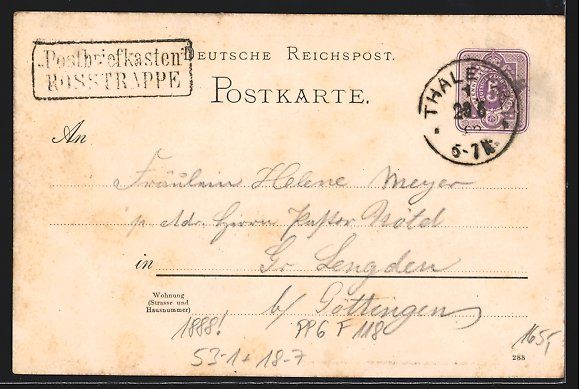 „Postbriefkasten“
ROSSTRAPPE
DEUTSCHE REICHSPOST.
POSTKARTE.
THALE
5-7N.
5
An
Fräulein Helene Meyer
p. Adr. Herrn Pastor Nöld
in Gr. Lengden
Wohnung
(Strasse und
Hausnummer)
b/ Göttingen
1888!
PP6 F 118
165,-
53-1+18-7
288